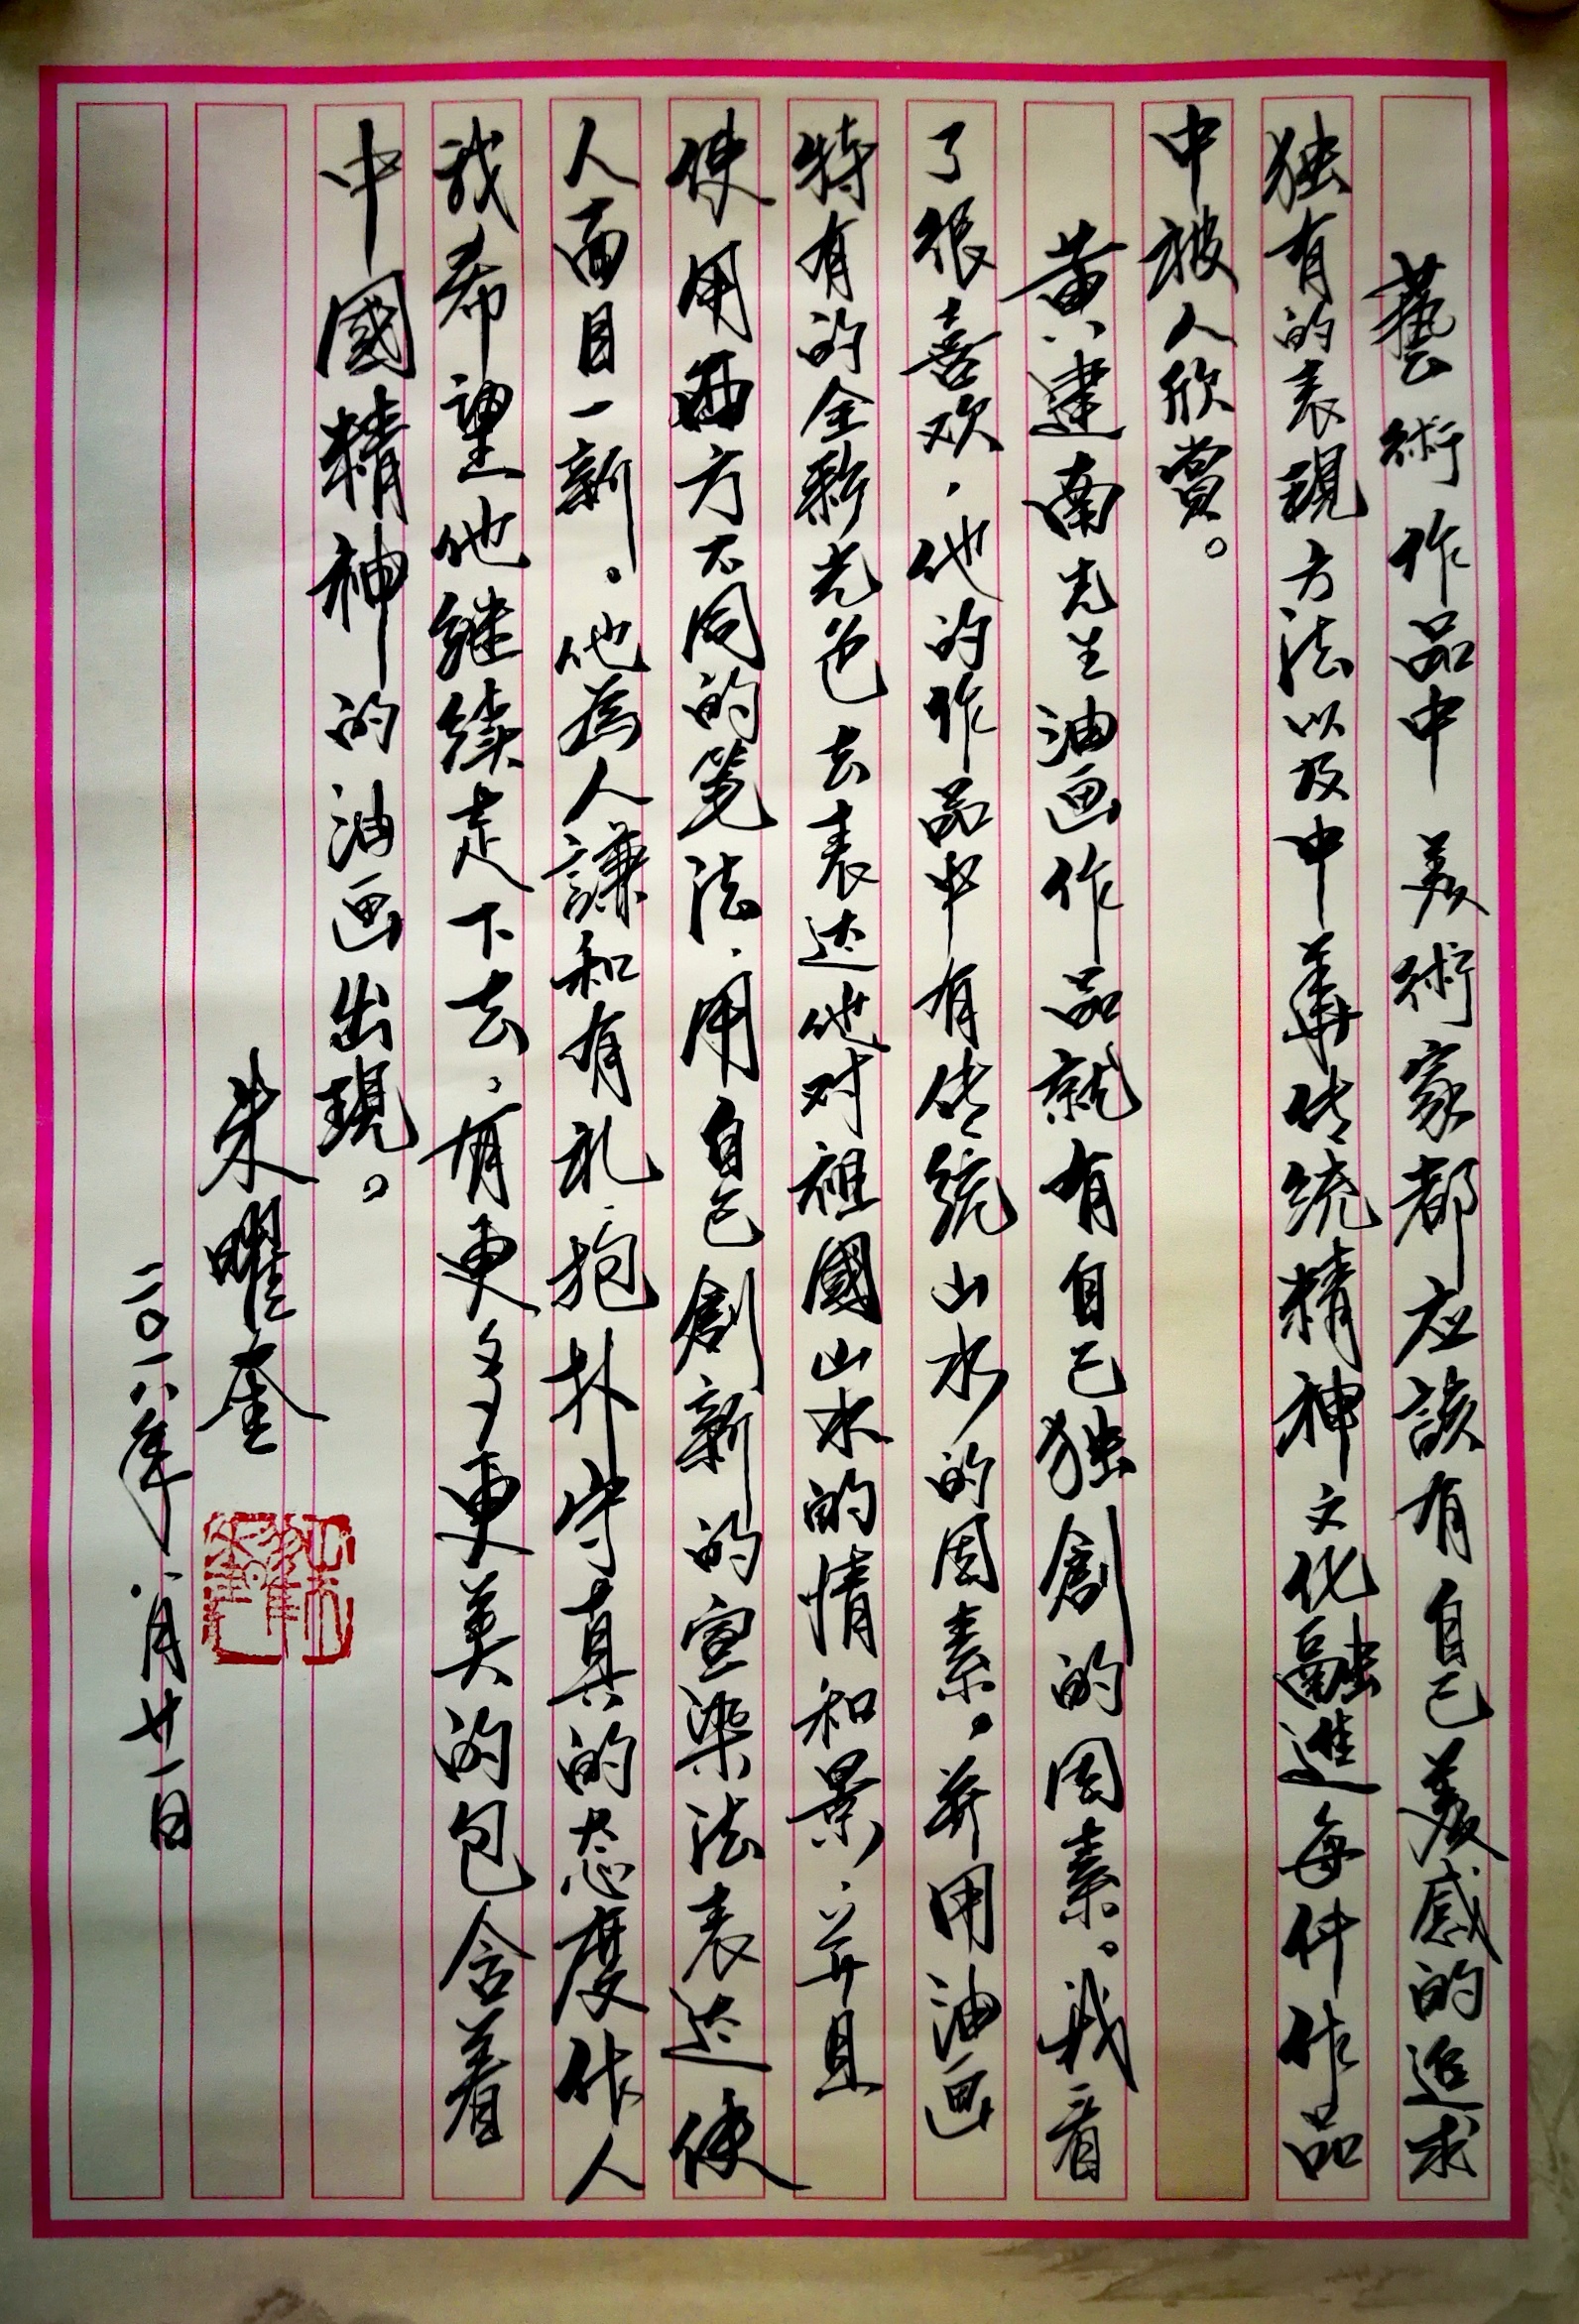 藝術作品中美術家都应該有自己美感的追求
独有的表現方法以及中華传统精神文化融進每件作品
中被人欣賞。
黄建南先生油画作品就有自己独創的因素。我看
了很喜欢,他的作品中有传統山水的因素,并用油画
特有的全新光色去表达他对祖國山水的情和景,并且
使用西方不同的笔法,用自己創新的宣染法表达使
人面目一新。他為人謙和有礼,抱朴守真的态度作人
我希望他继续走下去,有更多更美的包含着
中國精神的油画出現。
朱曜奎
二〇一八年八月廿一日